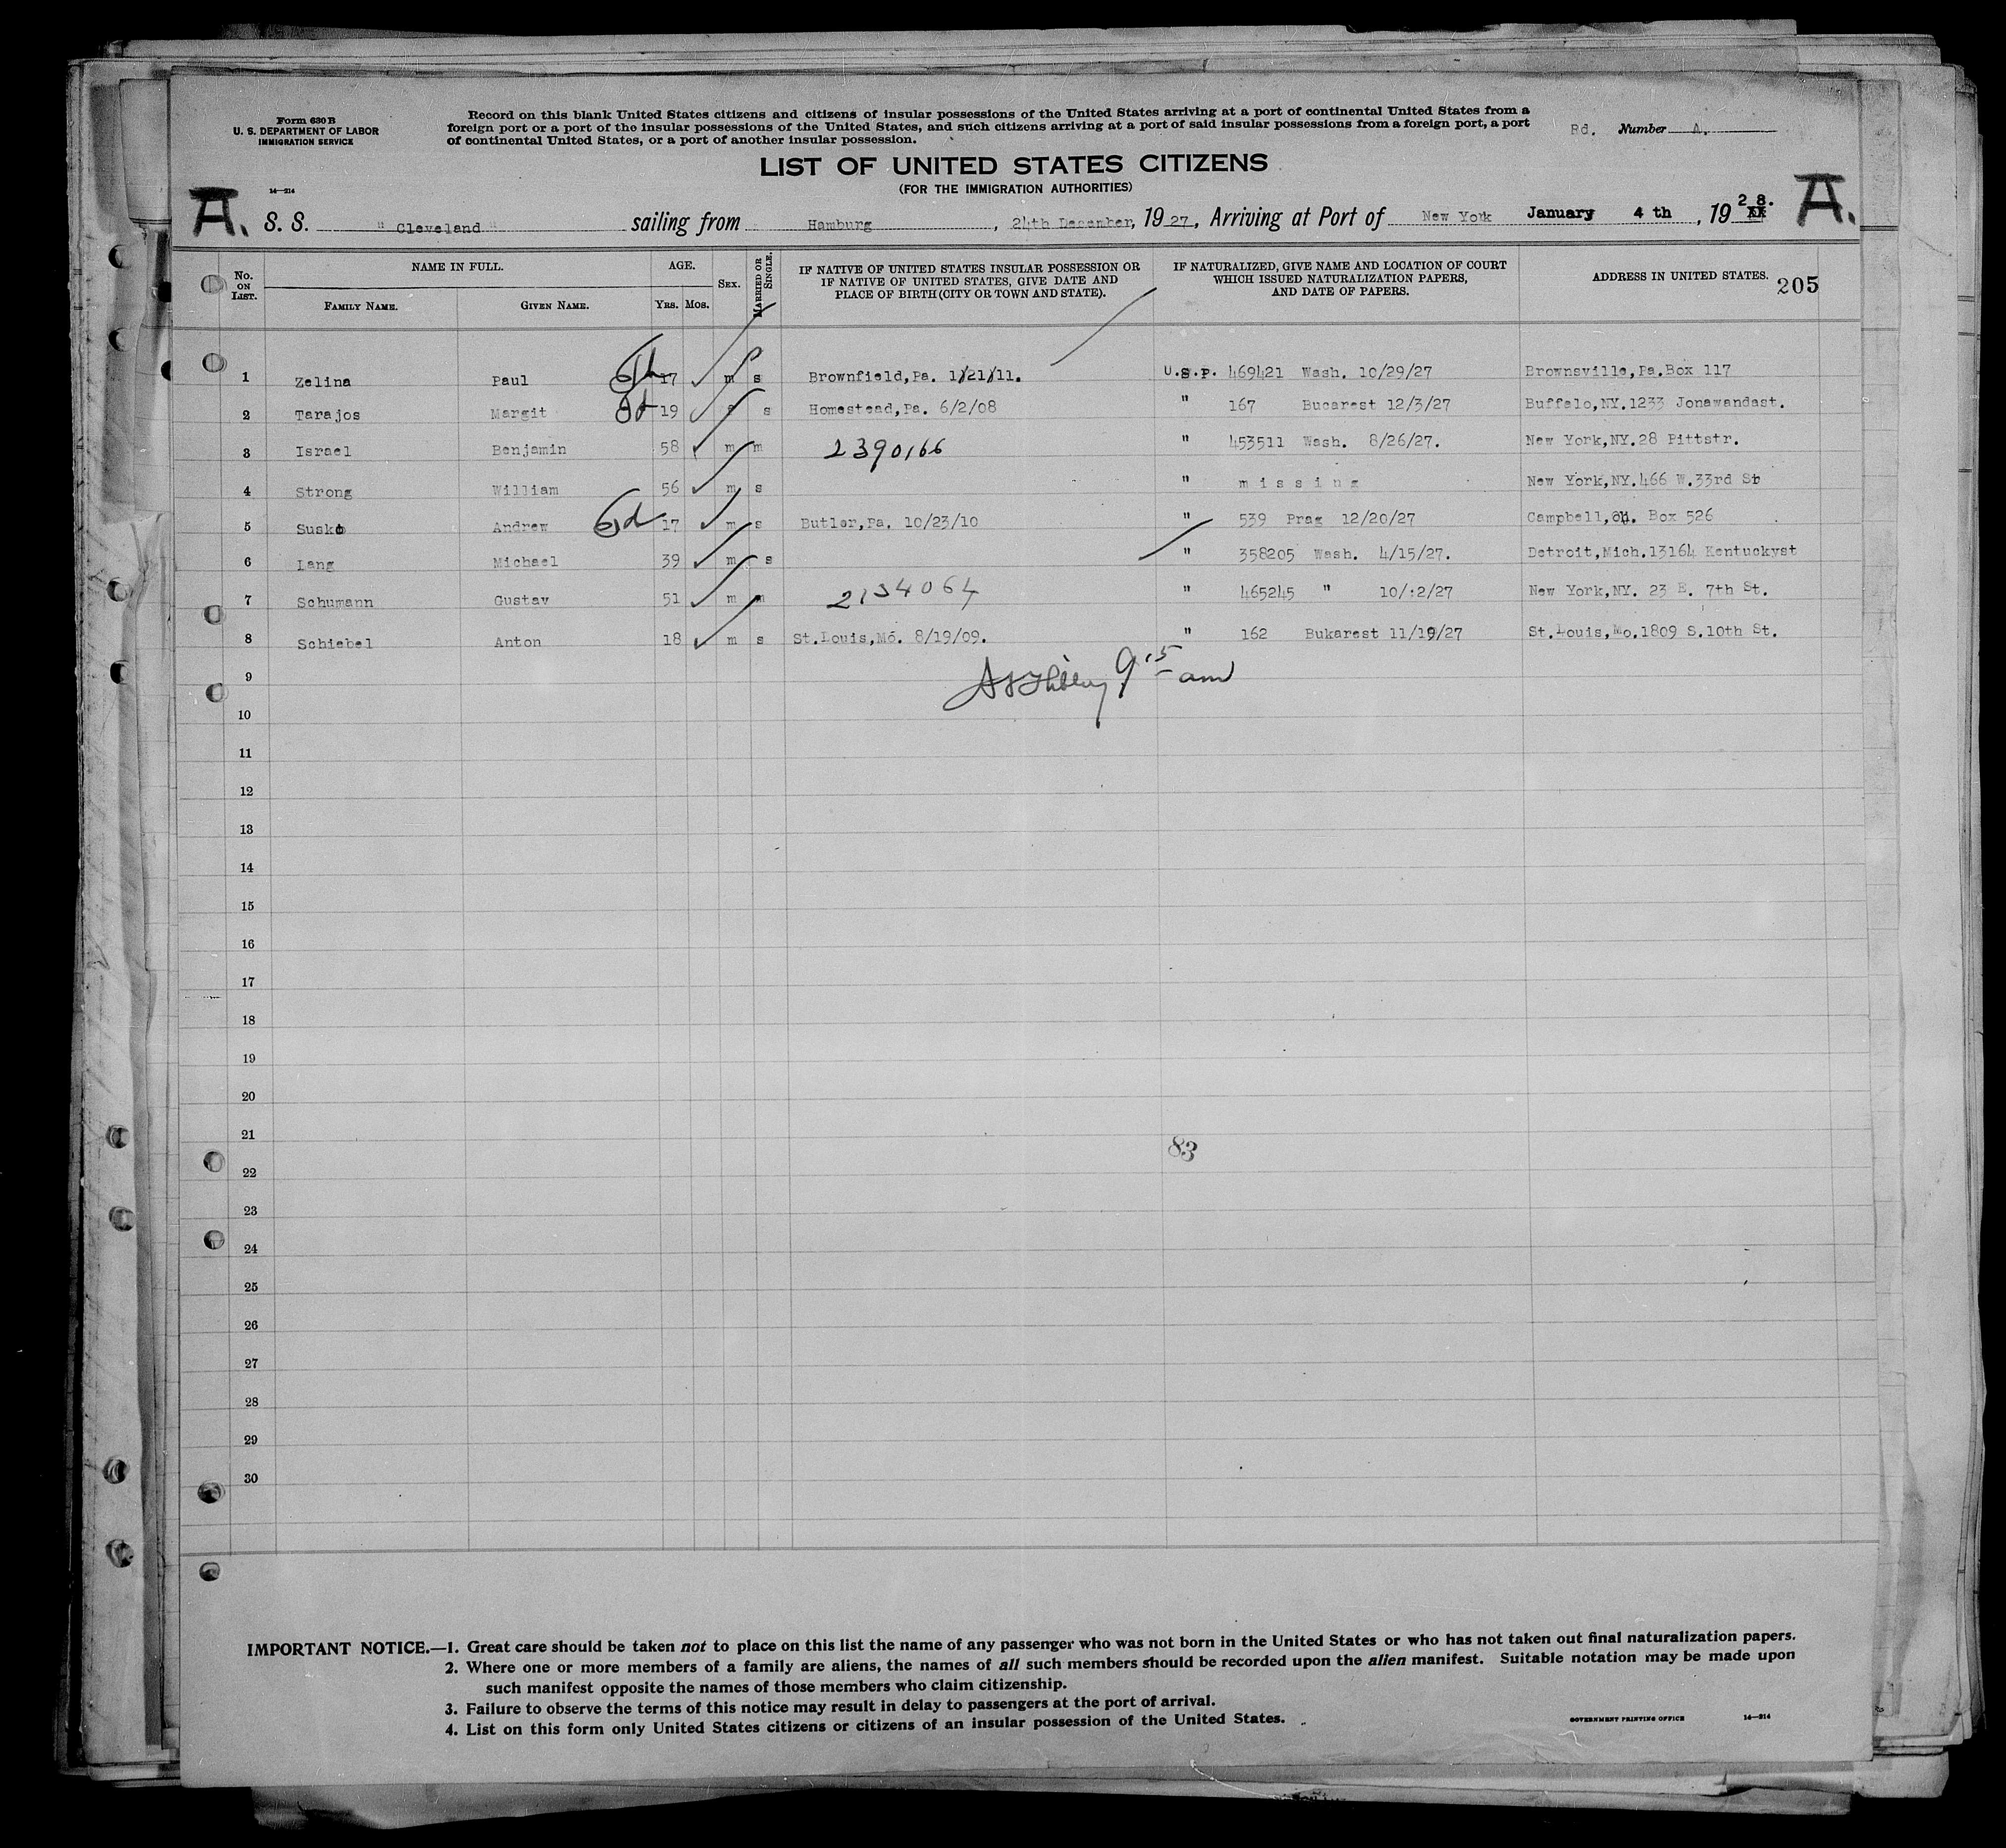 Form 630 B
U. S. DEPARTMENT OF LABOR
IMMIGRATION SERVICE
Record on this blank United States citizens and citizens of insular possessions of the United States arriving at a port of continental United States from a
foreign port or a port of the insular possessions of the United States, and such citizens arriving at a port of said insular possessions from a foreign port, a port
of continental United States, or a port of another insular possession.
Rd. Number A.
LIST OF UNITED STATES CITIZENS
(FOR THE IMMIGRATION AUTHORITIES)
14—214
A. S. S. "Cleveland" sailing from Hamburg, 24th December, 1927, Arriving at Port of New York January 4th, 1928. A.
No. ON LIST. NAME IN FULL. AGE. SEX. MARRIED OR SINGLE. IF NATIVE OF UNITED STATES INSULAR POSSESSION OR IF NATIVE OF UNITED STATES, GIVE DATE AND PLACE OF BIRTH (CITY OR TOWN AND STATE). IF NATURALIZED, GIVE NAME AND LOCATION OF COURT WHICH ISSUED NATURALIZATION PAPERS, AND DATE OF PAPERS. ADDRESS IN UNITED STATES. 205
FAMILY NAME. GIVEN NAME. YRS. MOS.
1 Zelina Paul 17 m s Brownfield,Pa. 1/21/11. U.S.P. 469421 Wash. 10/29/27 Brownsville,Pa.Box 117
2 Tarajos Margit 19 s Homestead,Pa. 6/2/08 " 167 Bucarest 12/3/27 Buffelo,NY.1233 Jonawandast.
3 Israel Benjamin 58 m m 2390166 " 453511 Wash. 8/26/27. New York,NY.28 Pittstr.
4 Strong William 56 m s " missing New York,NY.466 W.33rd St
5 Andrew 17 m s Butler,Pa. 10/23/10 " 539 Prag 12/20/27 Campbell, Box 526
6 Lang Michael 39 m s " 358205 Wash. 4/15/27. Detroit,Mich.13164 Kentuckyst
7 Schumann Gustav 51 m m 2134064 " 465245 " 10/:2/27 New York,NY. 23 E. 7th St.
8 Schiebel Anton 18 m s St.Louis,Mo. 8/19/09. " 162 Bukarest 11/19/27 St.Louis,Mo.1809 S.10th St.
9 9 15 am
10
11
12
13
14
15
16
17
18
19
20
21 83
22
23
24
25
26
27
28
29
30
IMPORTANT NOTICE.—1. Great care should be taken not to place on this list the name of any passenger who was not born in the United States or who has not taken out final naturalization papers.
2. Where one or more members of a family are aliens, the names of all such members should be recorded upon the alien manifest. Suitable notation may be made upon
such manifest opposite the names of those members who claim citizenship.
3. Failure to observe the terms of this notice may result in delay to passengers at the port of arrival.
4. List on this form only United States citizens or citizens of an insular possession of the United States.
GOVERNMENT PRINTING OFFICE 14—214